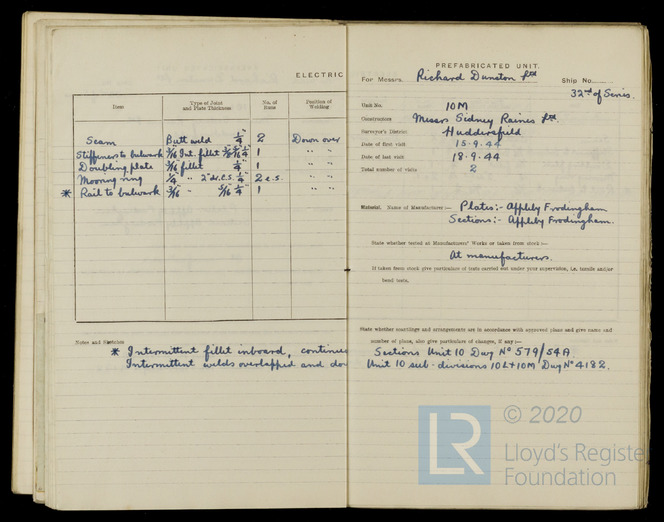 ELECTRIC
Item Type of Joint and Plate Thickness No. of Runs Position of Welding
Seam Butt weld 1/4" 2 Down over
Stiffeners to bulwark 3/16 Int. fillet 1/4" 1 " "
Doubling plate 3/16 fillet 1/4" 1 " "
Mooring ring 1/4 " 2" dt. e.s. 1/4" 2 e.s. " "
* Rail to bulwark 3/16 " 5/16 1/4" 1 " "
Notes and Sketches
* Intermittent fillet inboard, continuo
Intermittent welds overlapped and do
PREFABRICATED UNIT.
For Messrs. Richard Dunston Ltd Ship No.
32nd of Series.
Unit No. 10M
Constructors Messrs Sidney Raines Ltd
Surveyor's District Huddersfield
Date of first visit 15.9.44
Date of last visit 18.9.44
Total number of visits 2
Material. Name of Manufacturer:— Plates:- Appleby Frodingham
Sections:- Appleby Frodingham.
State whether tested at Manufacturers' Works or taken from stock:—
At manufacturers.
If taken from stock give particulars of tests carried out under your supervision, i.e. tensile and/or
bend tests.
State whether scantlings and arrangements are in accordance with approved plans and give name and
number of plans, also give particulars of changes, if any:—
Sections Unit 10 Dwg No 579/54A.
Unit 10 sub-divisions 10L+10M Dwg No 4182.
LR
© 2020
Lloyd's Register
Foundation